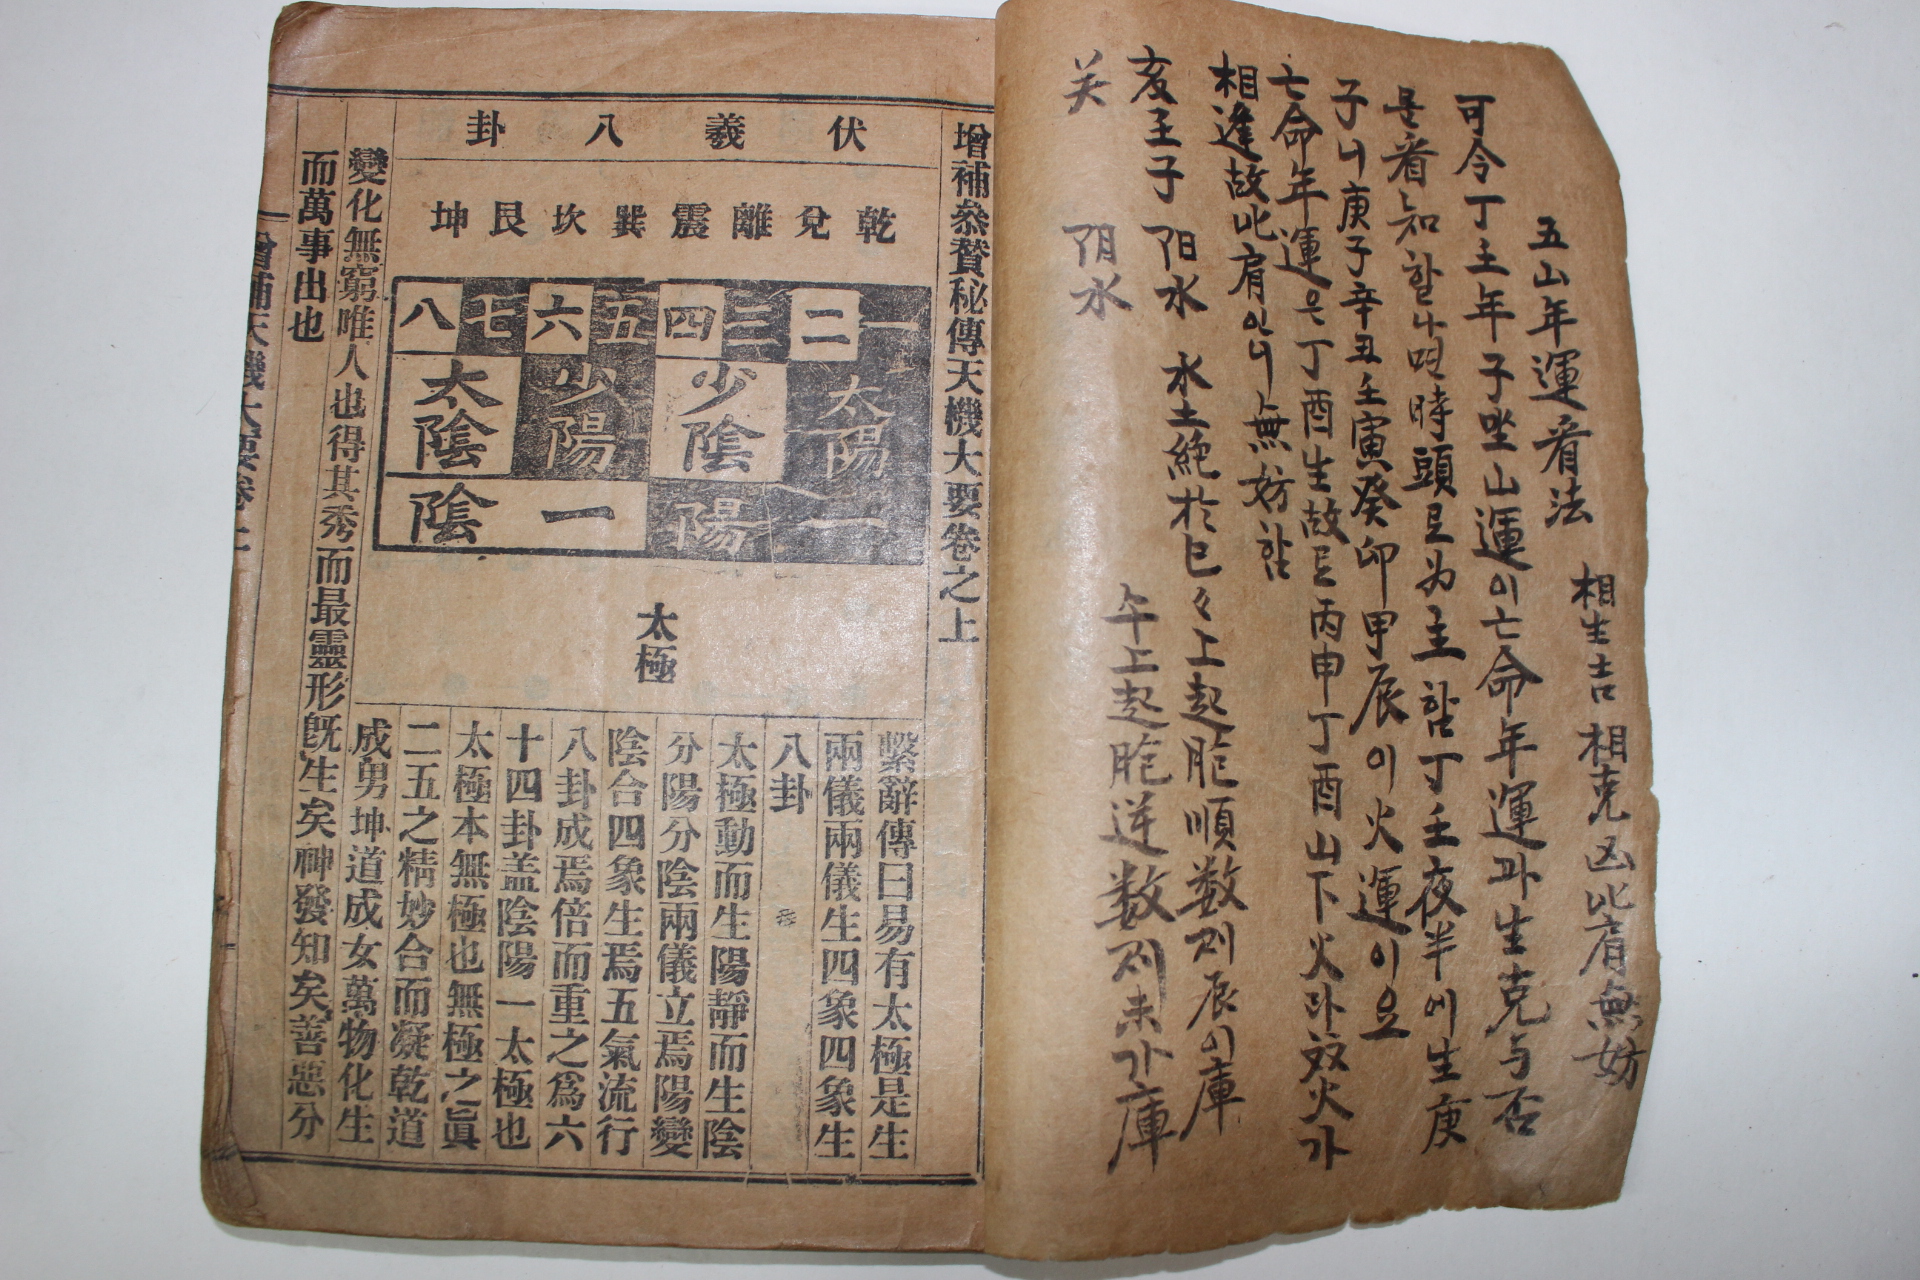 五山年運看法 相生吉 相克凶 比肩無妨
可令丁壬年子坐山運이亡命年運과生克与否
是着知할나면時頭로为主함丁壬夜半에生庚
子니庚子辛丑壬寅癸卯甲辰이火運이요
亡命年運은丁酉生故로丙申丁酉山下火라玆火가
相逢故比肩인니無妨함
亥壬子 阳水 水土絶於巳々上起胞順数則辰이庫
关 阴水 午上起胞逆数則未가庫
增補叅贊秘傳天機大要卷之上
伏羲八卦
乾兌離震巽坎艮坤
一二三四五六七八
太陽 少陰 少陽 太陰
陽一 陰一
太極
繫辭傳曰易有太極是生
兩儀兩儀生四象四象生
八卦
太極動而生陽靜而生陰
分陽分陰兩儀立焉陽變
陰合四象生焉五氣流行
八卦成焉倍而重之爲六
十四卦盖陰陽一太極也
太極本無極也無極之眞
二五之精妙合而凝乾道
成男坤道成女萬物化生
變化無窮唯人也得其秀而最靈形旣生矣神發知矣善惡分
而萬事出也
增補天機大要卷上